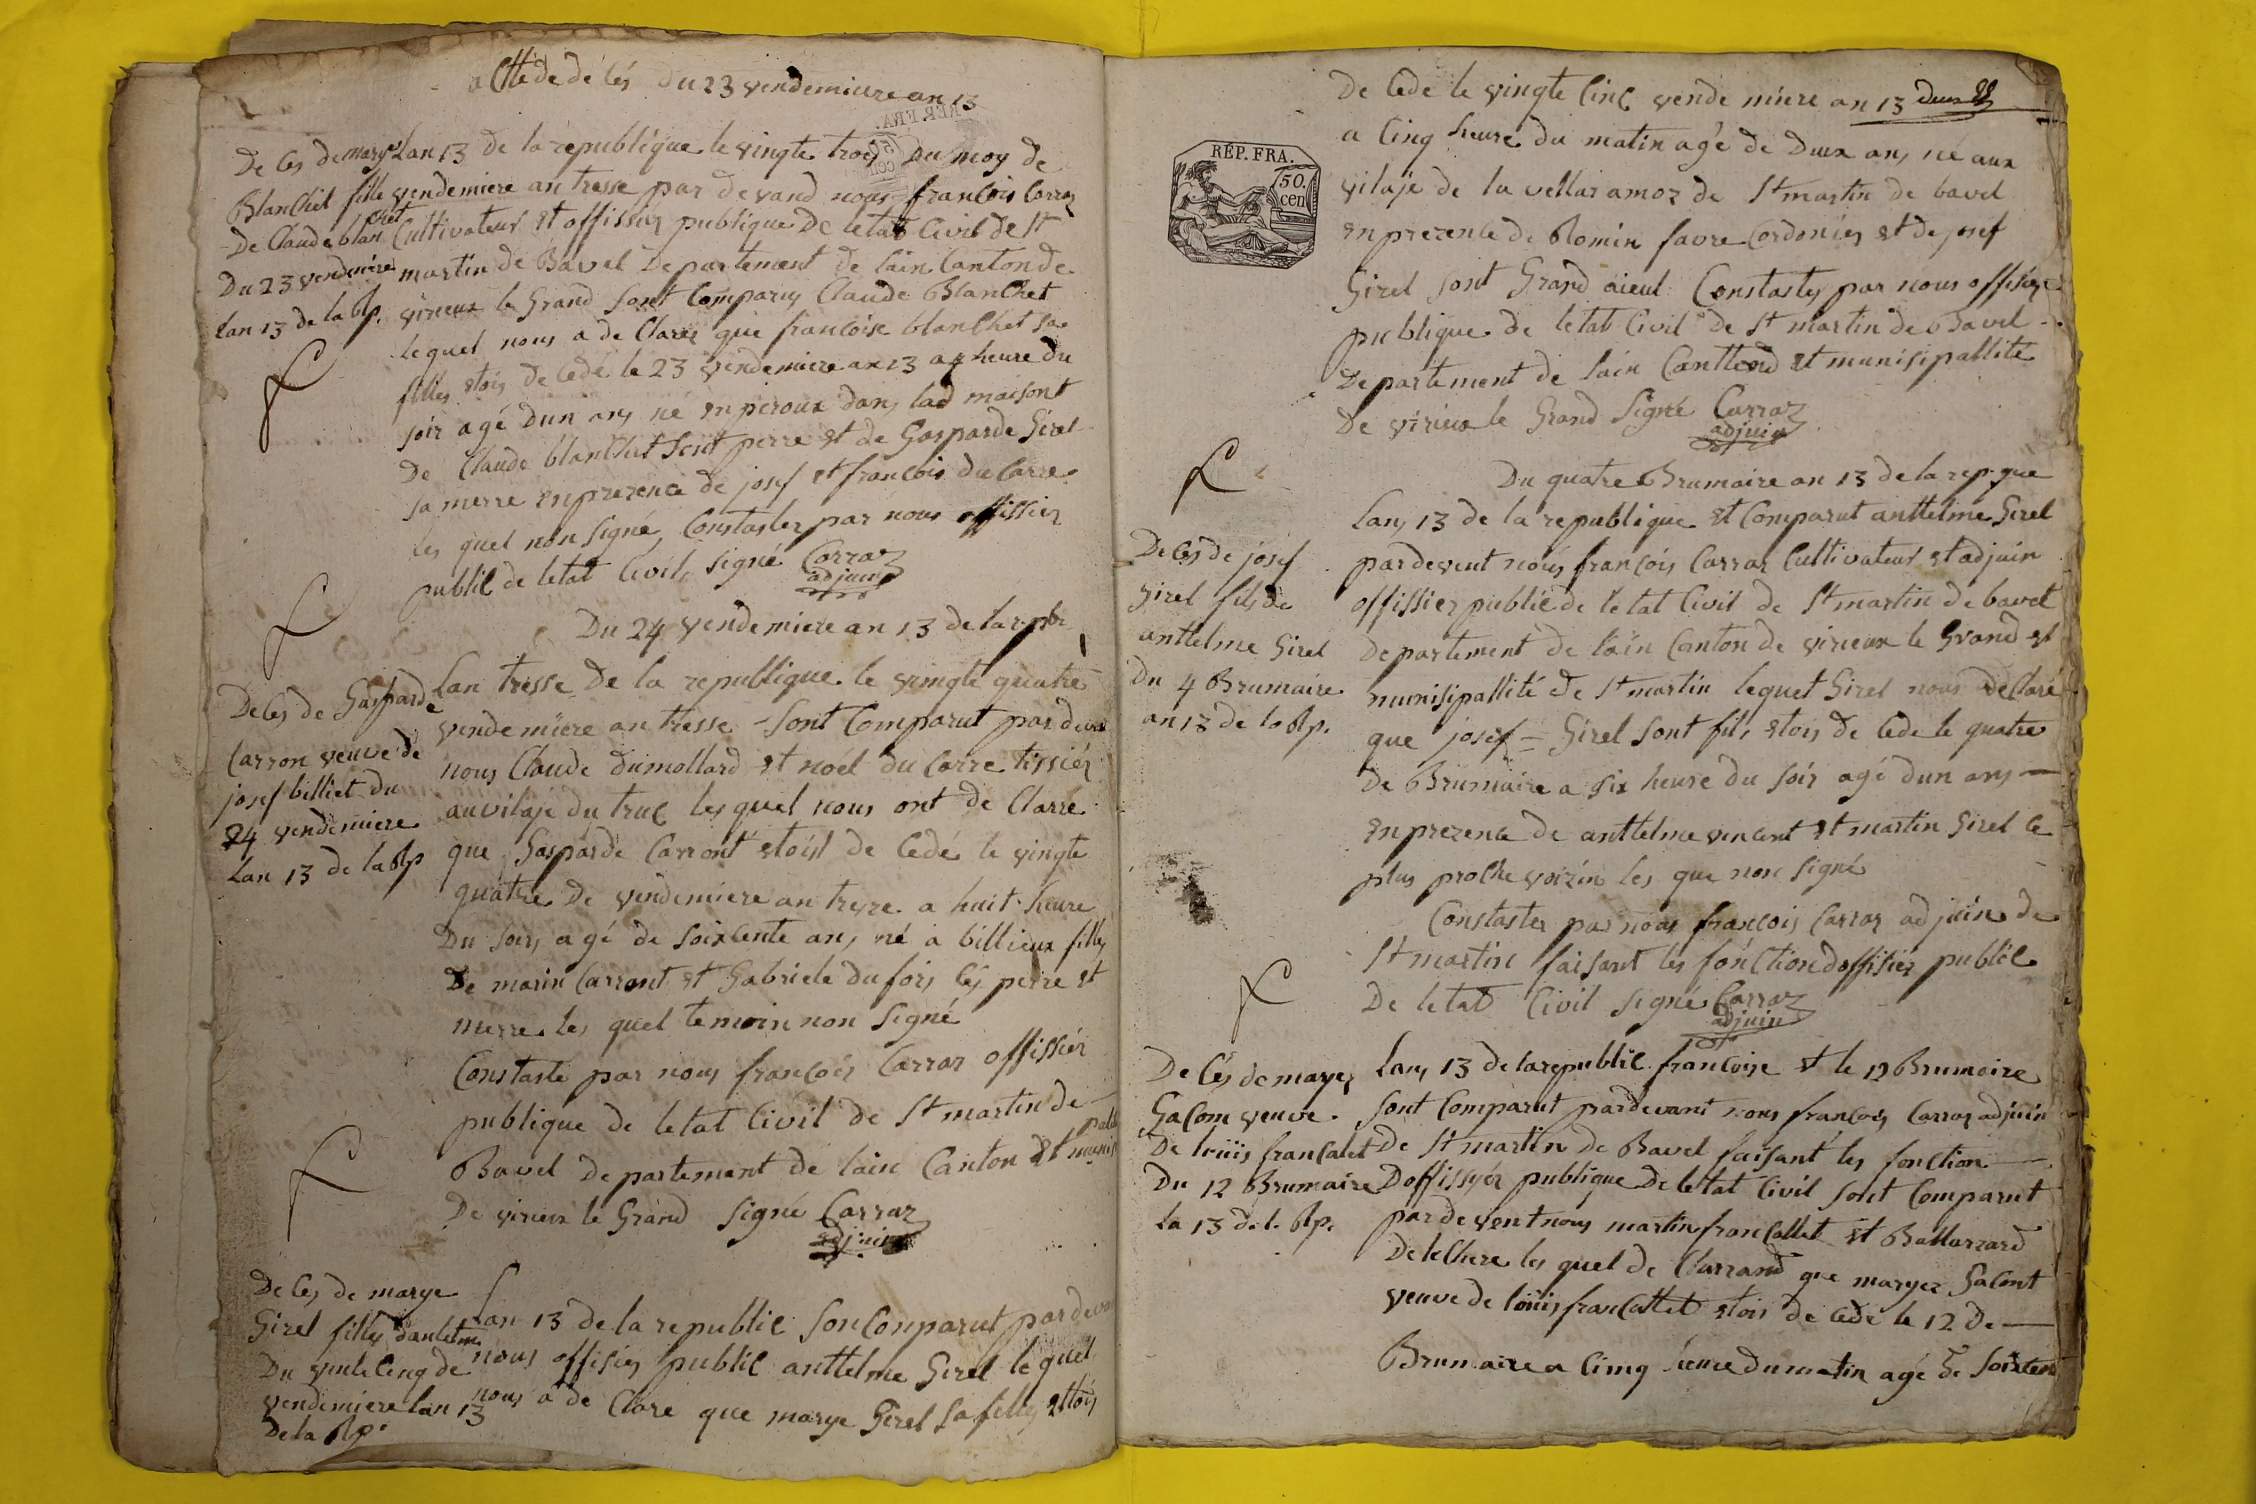 acttede de cés du 23 vendemiere an 13
De ces de marye
Blanchet fille
De Claude blanchet
Du 23 vendemiere
Lan 13 de la Rp.
Lan 13 de la republique le vingte troy Du moy de
vendemiere an tresse par de vand nous francois Carraz
Cultivateur et offissier publique De letat Civil de St
martin de Bavel Departement de lain Canton de
virieux le Grand sont Comparus Claude Blanchet
lequel nous a de Clarez que francoise blanchet sa
filles etois de Cedé le 23 vendemiere an 13 a 4 heure du
soir agé dun ans né en peroux dans lad maisont
De Claude blanchet sont perre et de Gasparde Girel
sa merre en prezence de josef et francois du Carre
les quel non signé, Constastez par nous offissiez
public de letat Civil, signé Carraz
adjuin
Du 24 vendemiere an 13 de la rpbe
De Ces de Gasparde
Carron veuve de
josef billiet du
24 vendemiere
Lan 13 de la Rp
Lan tresse De la republique le vingte quatre
vendemiere an tresse - sont Comparut par devan
nous Claude dumollard et noél du Carre tissiér
au vilaje du truc les quel nous ont de Clarré
que Gasparde Carront etoist de Cedé le vingte
quatre De vendemiere an treze a huit heure
Du soir, agé de soixcente an, né a billieux filles
De marin Carront et Gabriele du fois, ces perre et
merre les quel temoin non signé
Constasté par nous francois Carraz offissiér
publique de letat Civil de St martin de
Bavel Departement de lain Canton et munisipalité
De virieux le Grand signé Carraz
adjuin
De Ces de marye
Girel filles dantelme
Du vinte Cinq de
vendemiere lan 13
De la Rp.
Lan 13 de la republic son Conparut par devan
nous offisiez public anttelme Girel lequel
nous a de Clare que marye Girel sa filles ettois
De Cede le vingte Cinc vende miere an 13 deux
RÉP. FRA.
50.
cen
a Cinq heure du matin agé de Deux an, né aux
vilaje de la vellaz amoz de St martin de bavel
en prezence de Romin favre Cordoniez et de josef
Girel sont Grand aieul Constastez par nous offisiez
publique de letat Civil de St martin de Bavel
Departement de lain Canttond et munisipallité
De virieux le Grand signé Carraz
adjuin
Du quatre Brumaire an 13 de la rep.que
De Ces de josef
Girel fils de
anttelme Girel
Du 4 Brumaire
an 13 de la Rp.
Lan, 13 de la republique et Comparut anttelme Girel
par devent nous francois Carraz Cultivateur et adjuin
offissiez public de letat Civil de St martin de bavel
departement de lain Canton de virieux le Grand et
munisipallité de St martin lequel Girel nous de Claré
que josef = Girel sont fils, etois de Cede le quatre
de Brumaire a six heure du soir agé dun ans
en prezence de anttelme vincent et martin Girel Ce
plus proche voizin les que non signé
Constastez par nous francois Carraz adjuin de
St martin faisant les fonction doffisiéz public
De letat Civil signé Carraz
adjuin
De Cés de maryez
Gacom veuve
De louiis francalet
Du 12 Brumaire
La 13 de la Rp.
Lan, 13 de la republic francoise et le 12 Brumaire
sont Comparut pardevant nous francois Carraz adjuin
de St martin de Bavel faisant les fonction
Doffissyér publique De letat Civil sont Comparut
par de vent nous martin francallet et Ballarzard
Delechere les quel de Clarrand que maryez Gacont
veuve de louiis francallet etois de Cedé le 12 De
Brumaire a Cinq heure du matin agé de soixtent